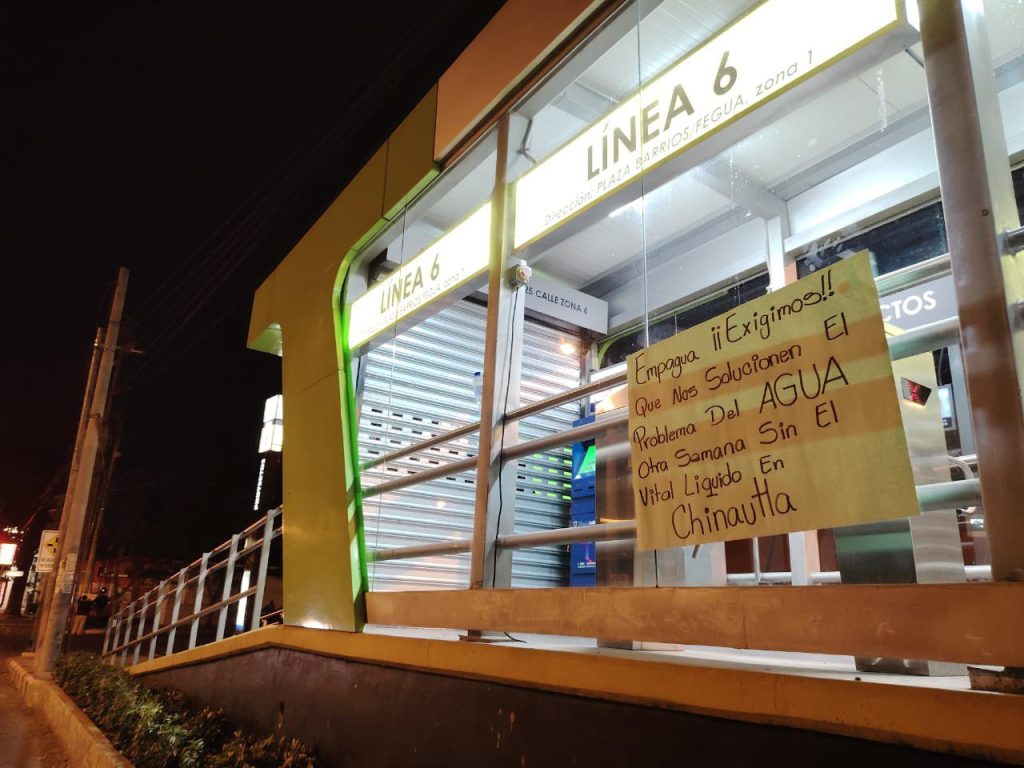 LÍNEA 6
Dirección: PLAZA BARRIOS/FEGUA, zona 1
LÍNEA 6
BARRIOS/FEGUA, zona 1
25 CALLE ZONA 6
CTOS
Empagua ¡¡Exigimos!!
Que Nos Solucionen El
Problema Del AGUA
Otra Semana Sin El
Vital Liquido En
Chinautla